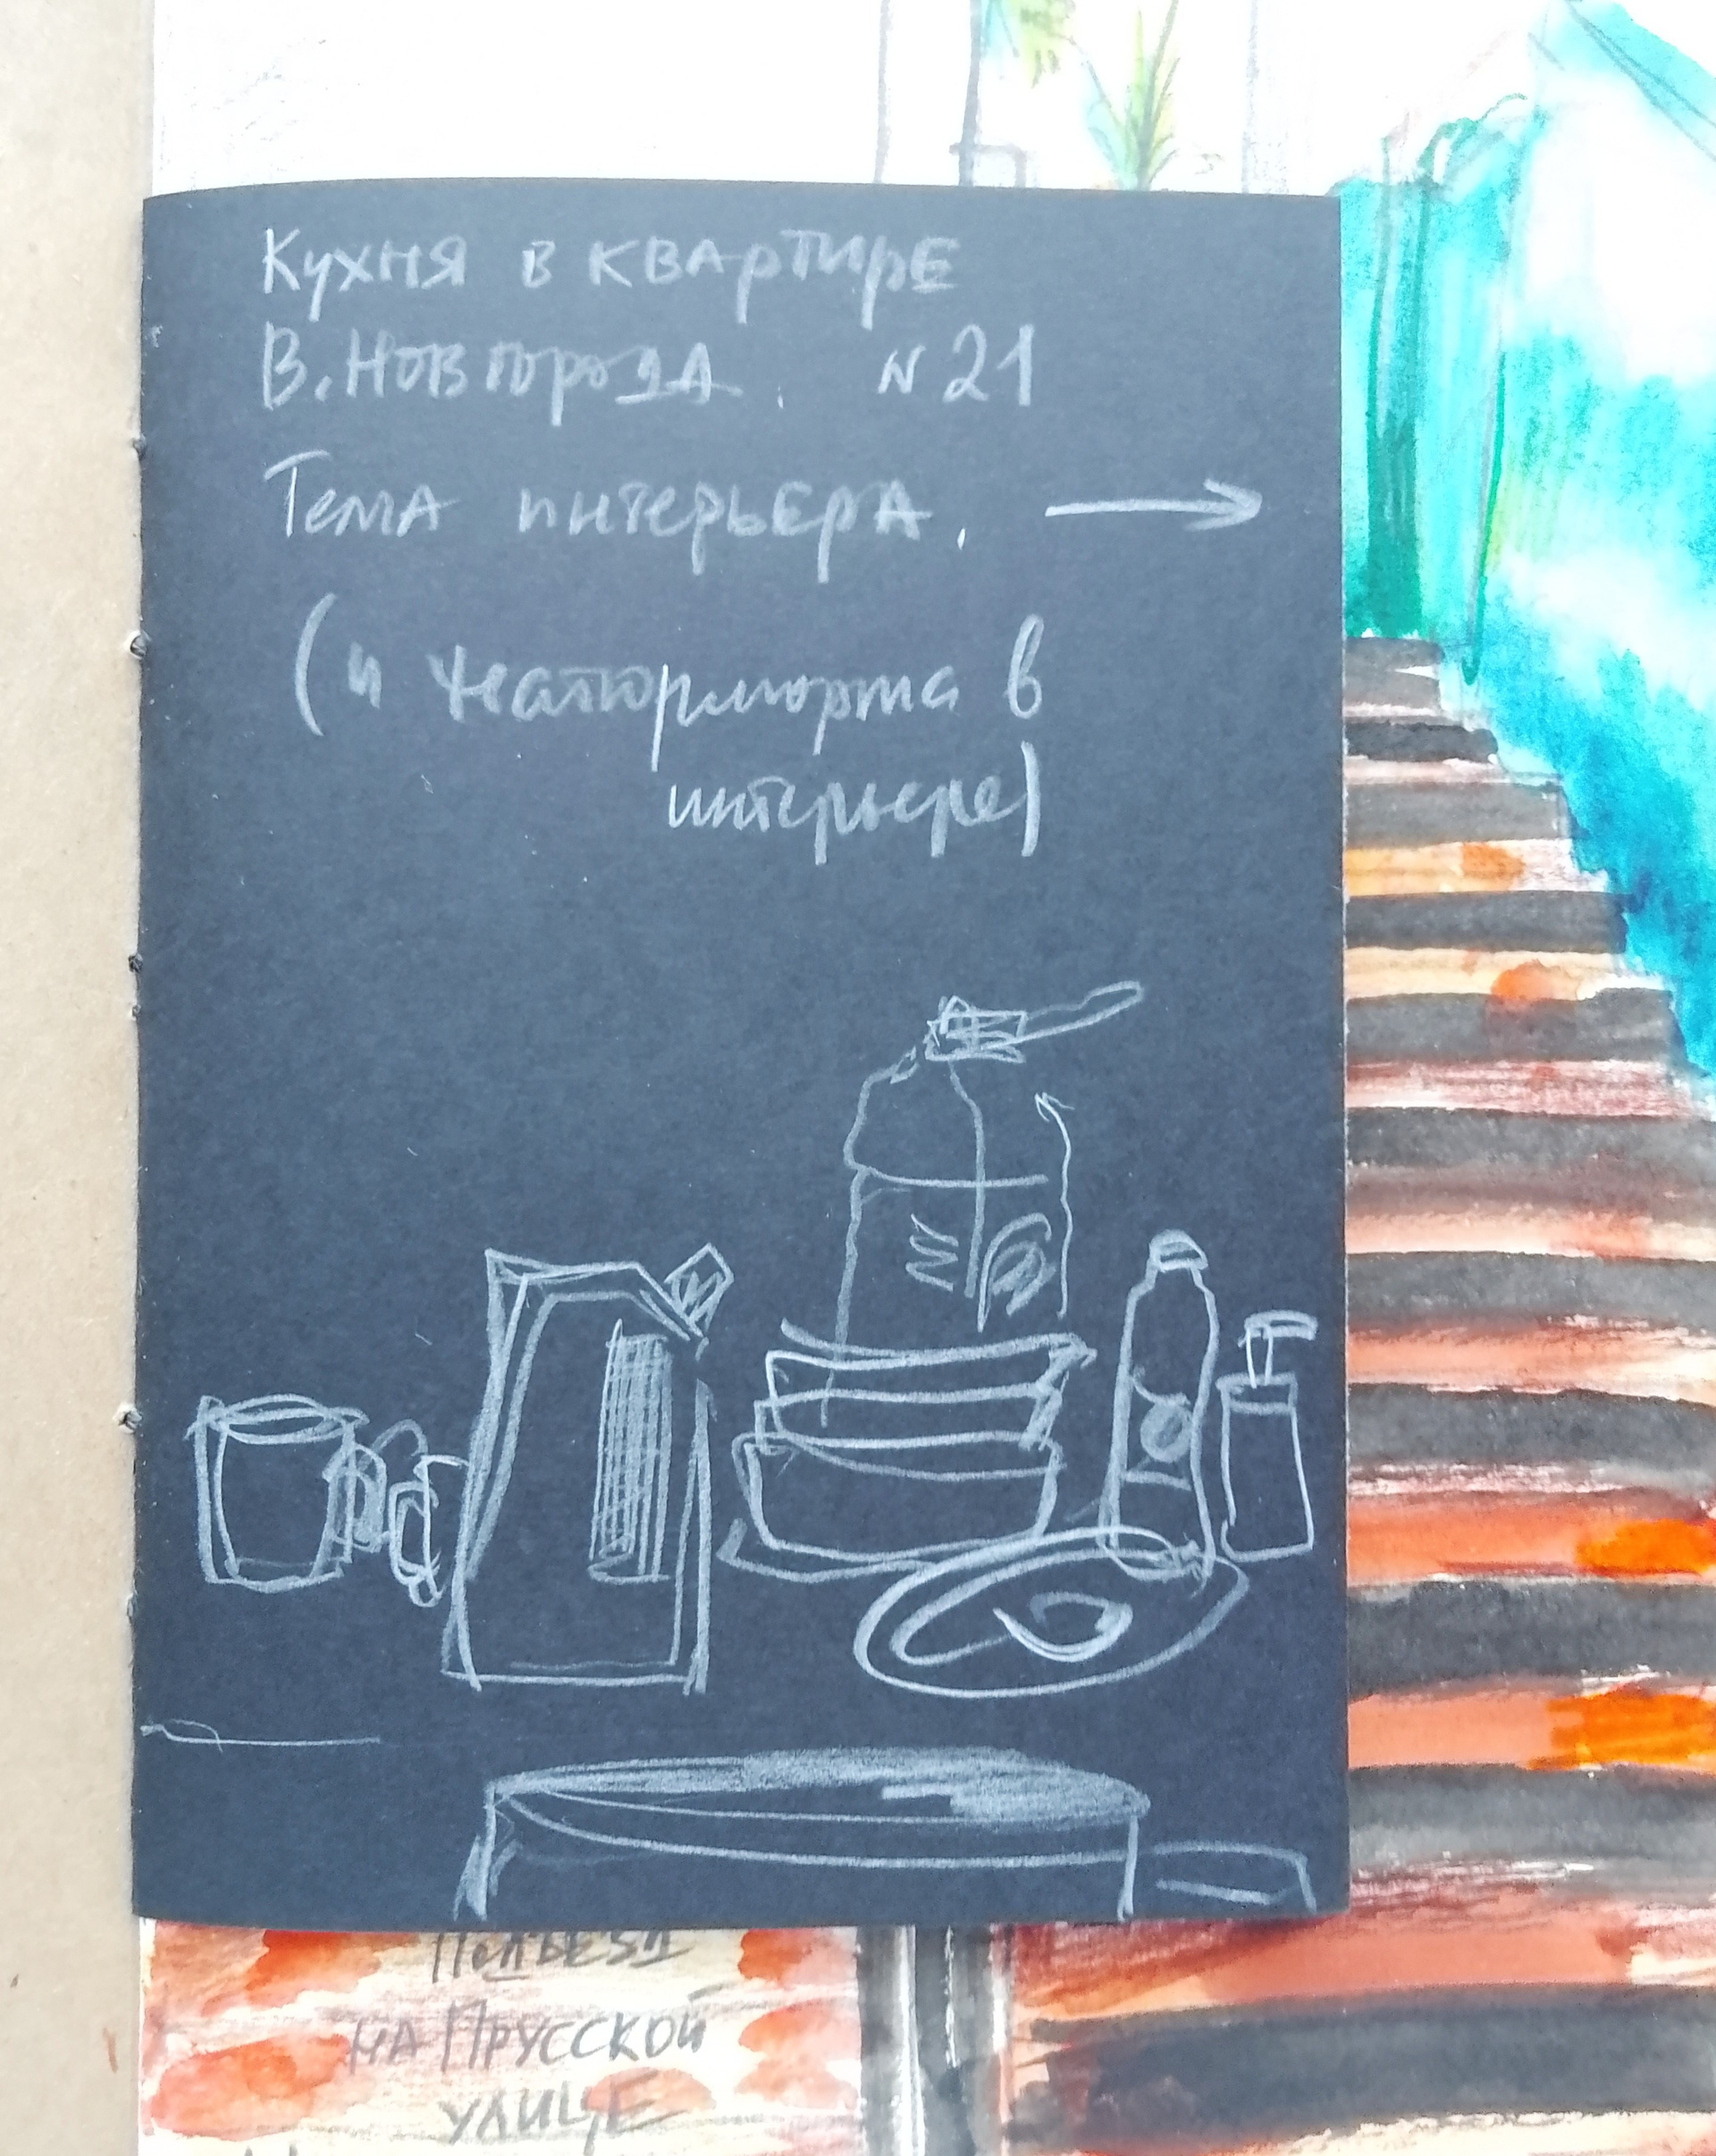 Кухня в квартире
В. Новгорода. N 21
Тема интерьера. →
(и натюрморта в
интерьере)
Подъезд
на Прусской
улице